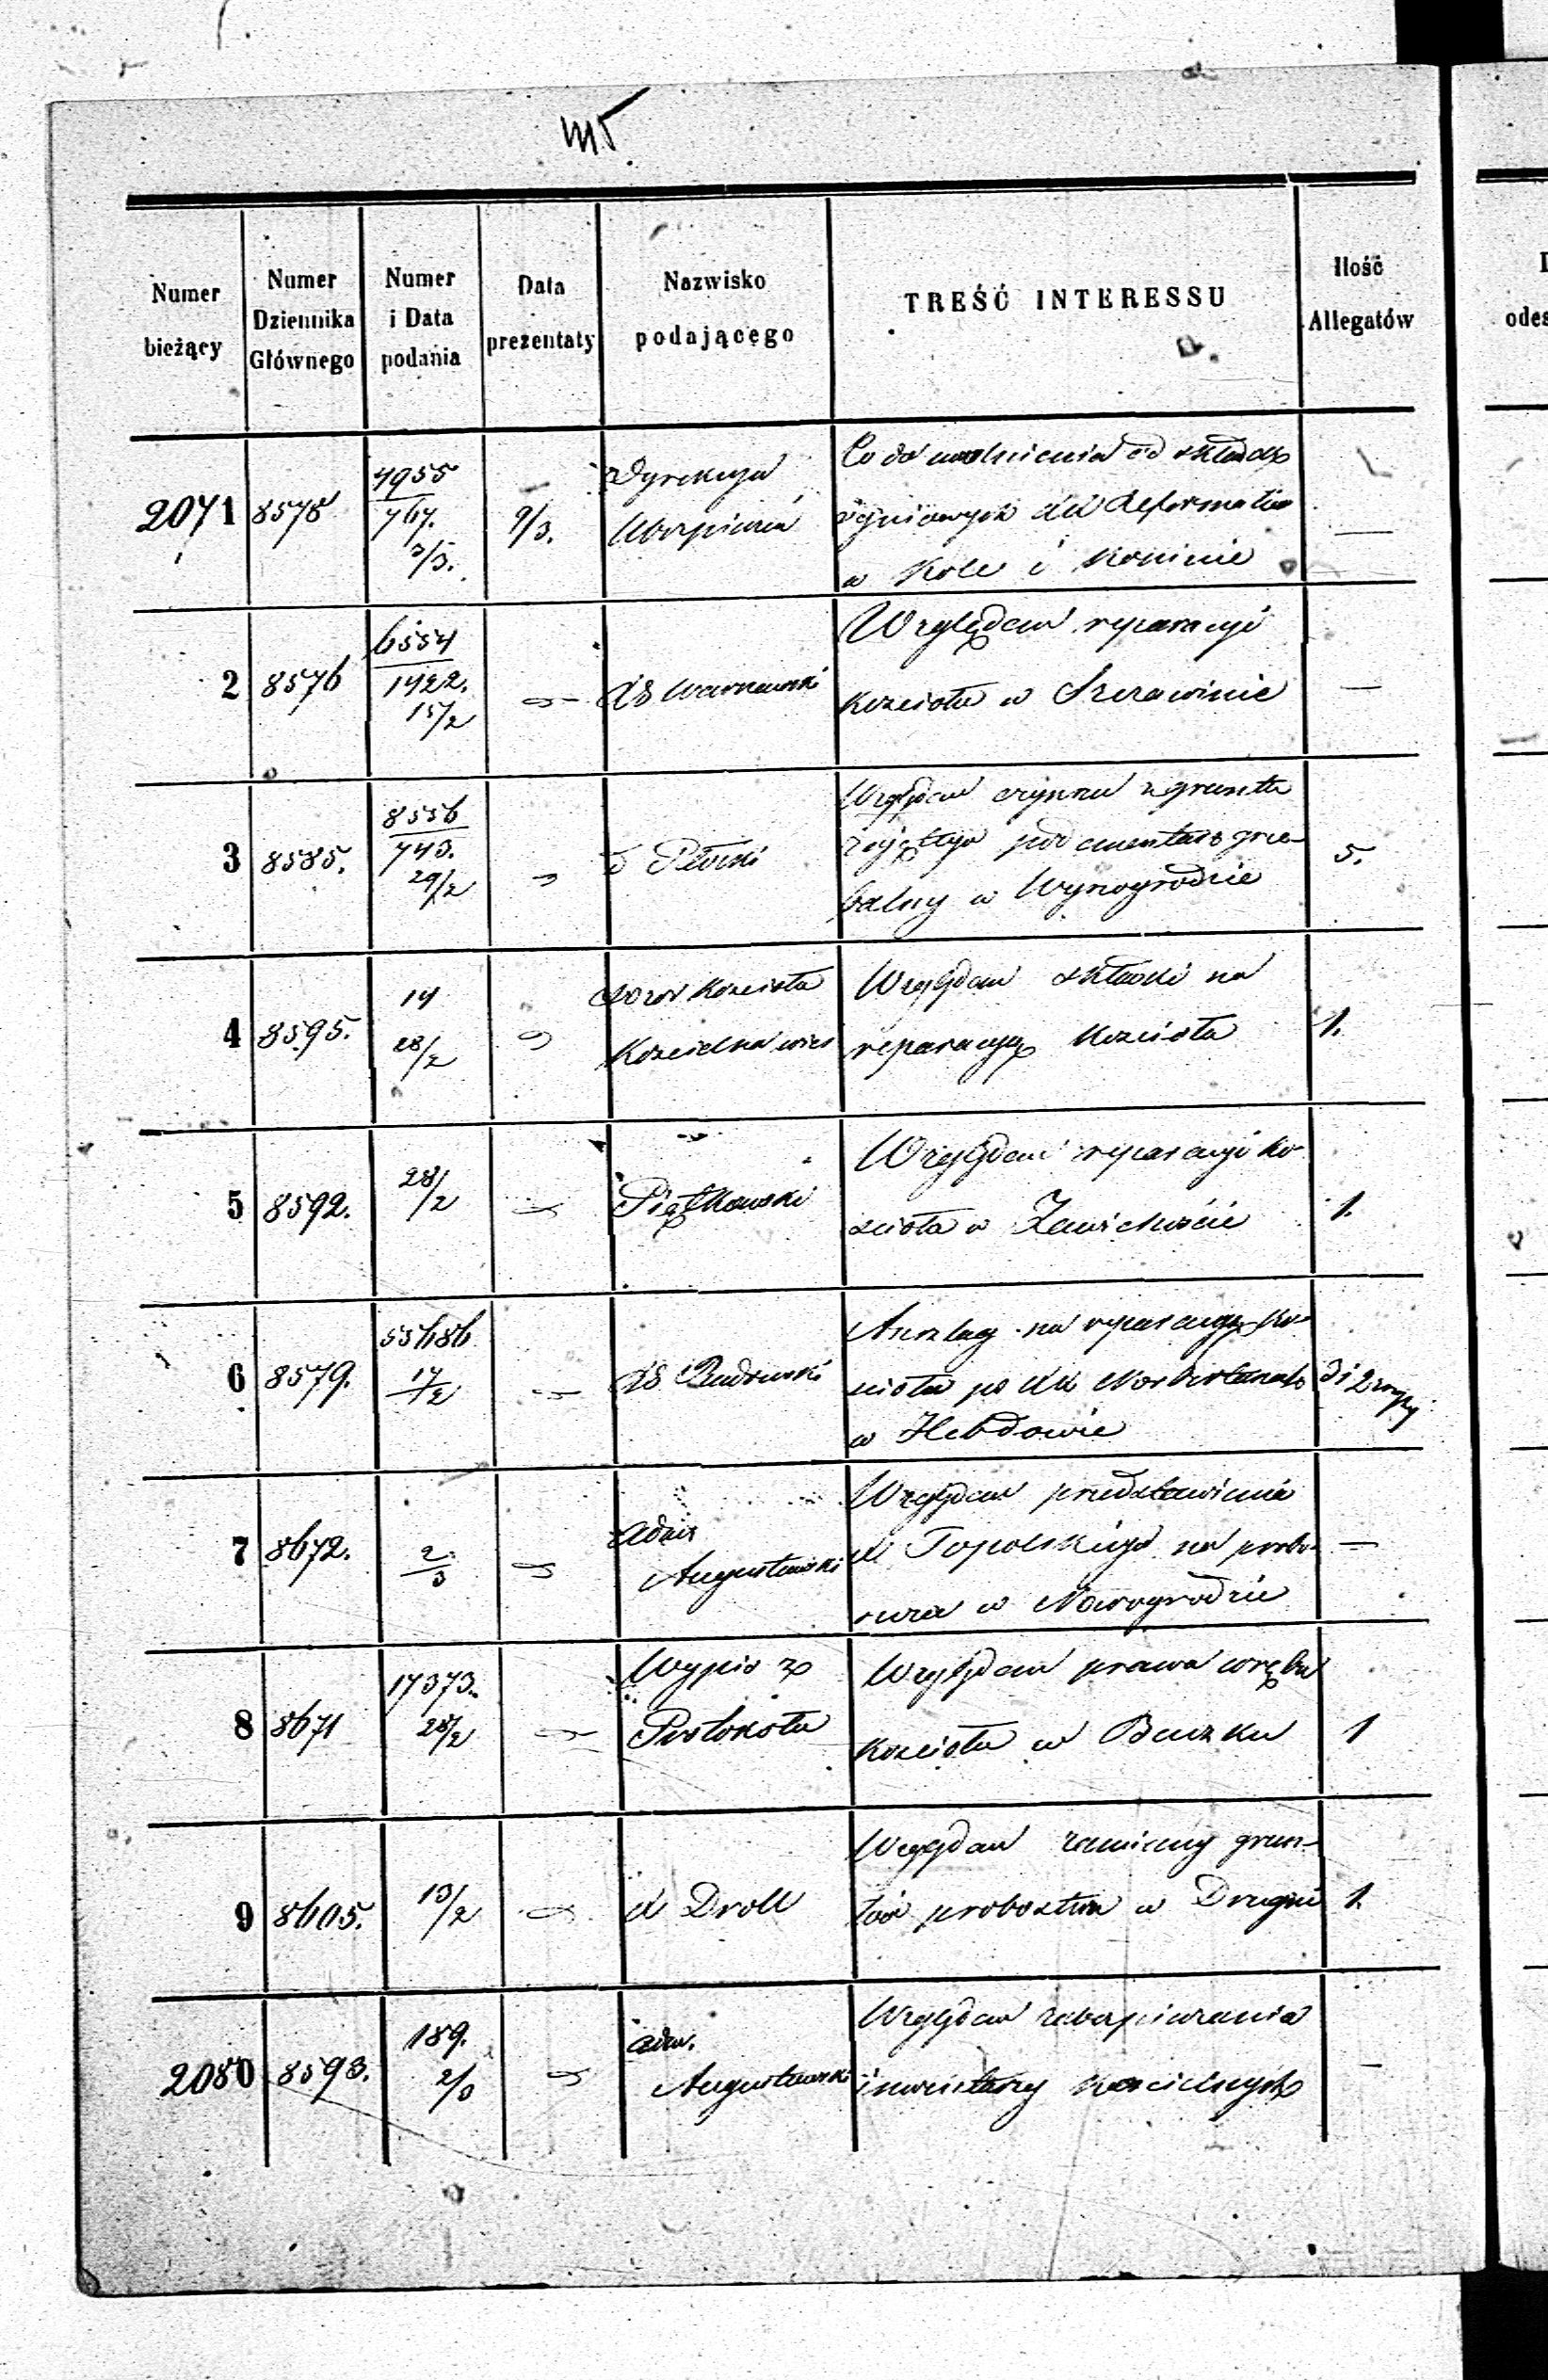 Numer bieżący | Numer Dziennika Głównego | Numer i Data podania | Data prezentaty | Nazwisko podającego | TREŚĆ INTERESSU | Ilość Allegatów
2071 | 8578 | 4955 / 767. 3/3. | 9/3. | Dyrekcya Ubezpieczeń | Co do uwolnienia od składek
ogniowych XX Reformatów
w Kole i Koninie | —
2 | 8576 | 6554 / 1422. 15/2 | | RG Warszawski | Względem reparacyi
Kościoła w Szczawinie | —
3 | 8585. | 8556 / 743. 29/2 | | Płocki | Względem czynszu z gruntu
zajętego pod cmentarz grze-
balny w Wyszogrodzie | 5.
4 | 8595. | 14 28/2 | | Dozór Kościoła
Kościelna wieś | Względem składki na
reparacyę Kościoła | 1.
5 | 8592. | 28/2 | | Piątkowski | Względem reparacyi ko-
ścioła w Zawichoście | 1.
6 | 8579. | 55686 17/2 | | RG Radomski | Anszlag na reparacyę ko-
ścioła po XX Norbertanach
w Hebdowie
7 | 8672. | 2/3 | | Adm
Augustowski | Względem przedstawienia
X Topolskiego na probo-
szcza w Nowogrodzie | —
8 | 8671 | 17373. 28/2 | | Wypis z
Protokołu | Względem prawa wrębu
Kościoła w Buczku | 1
9 | 8605. | 13/2 | | X Droll | Względem zamiany grun-
tów probostwa w Drugni | 1.
2080 | 8593. | 189. 2/3 | | Adm.
Augustowski | Względem zabezpieczenia
inwentarzy kościelnych | —